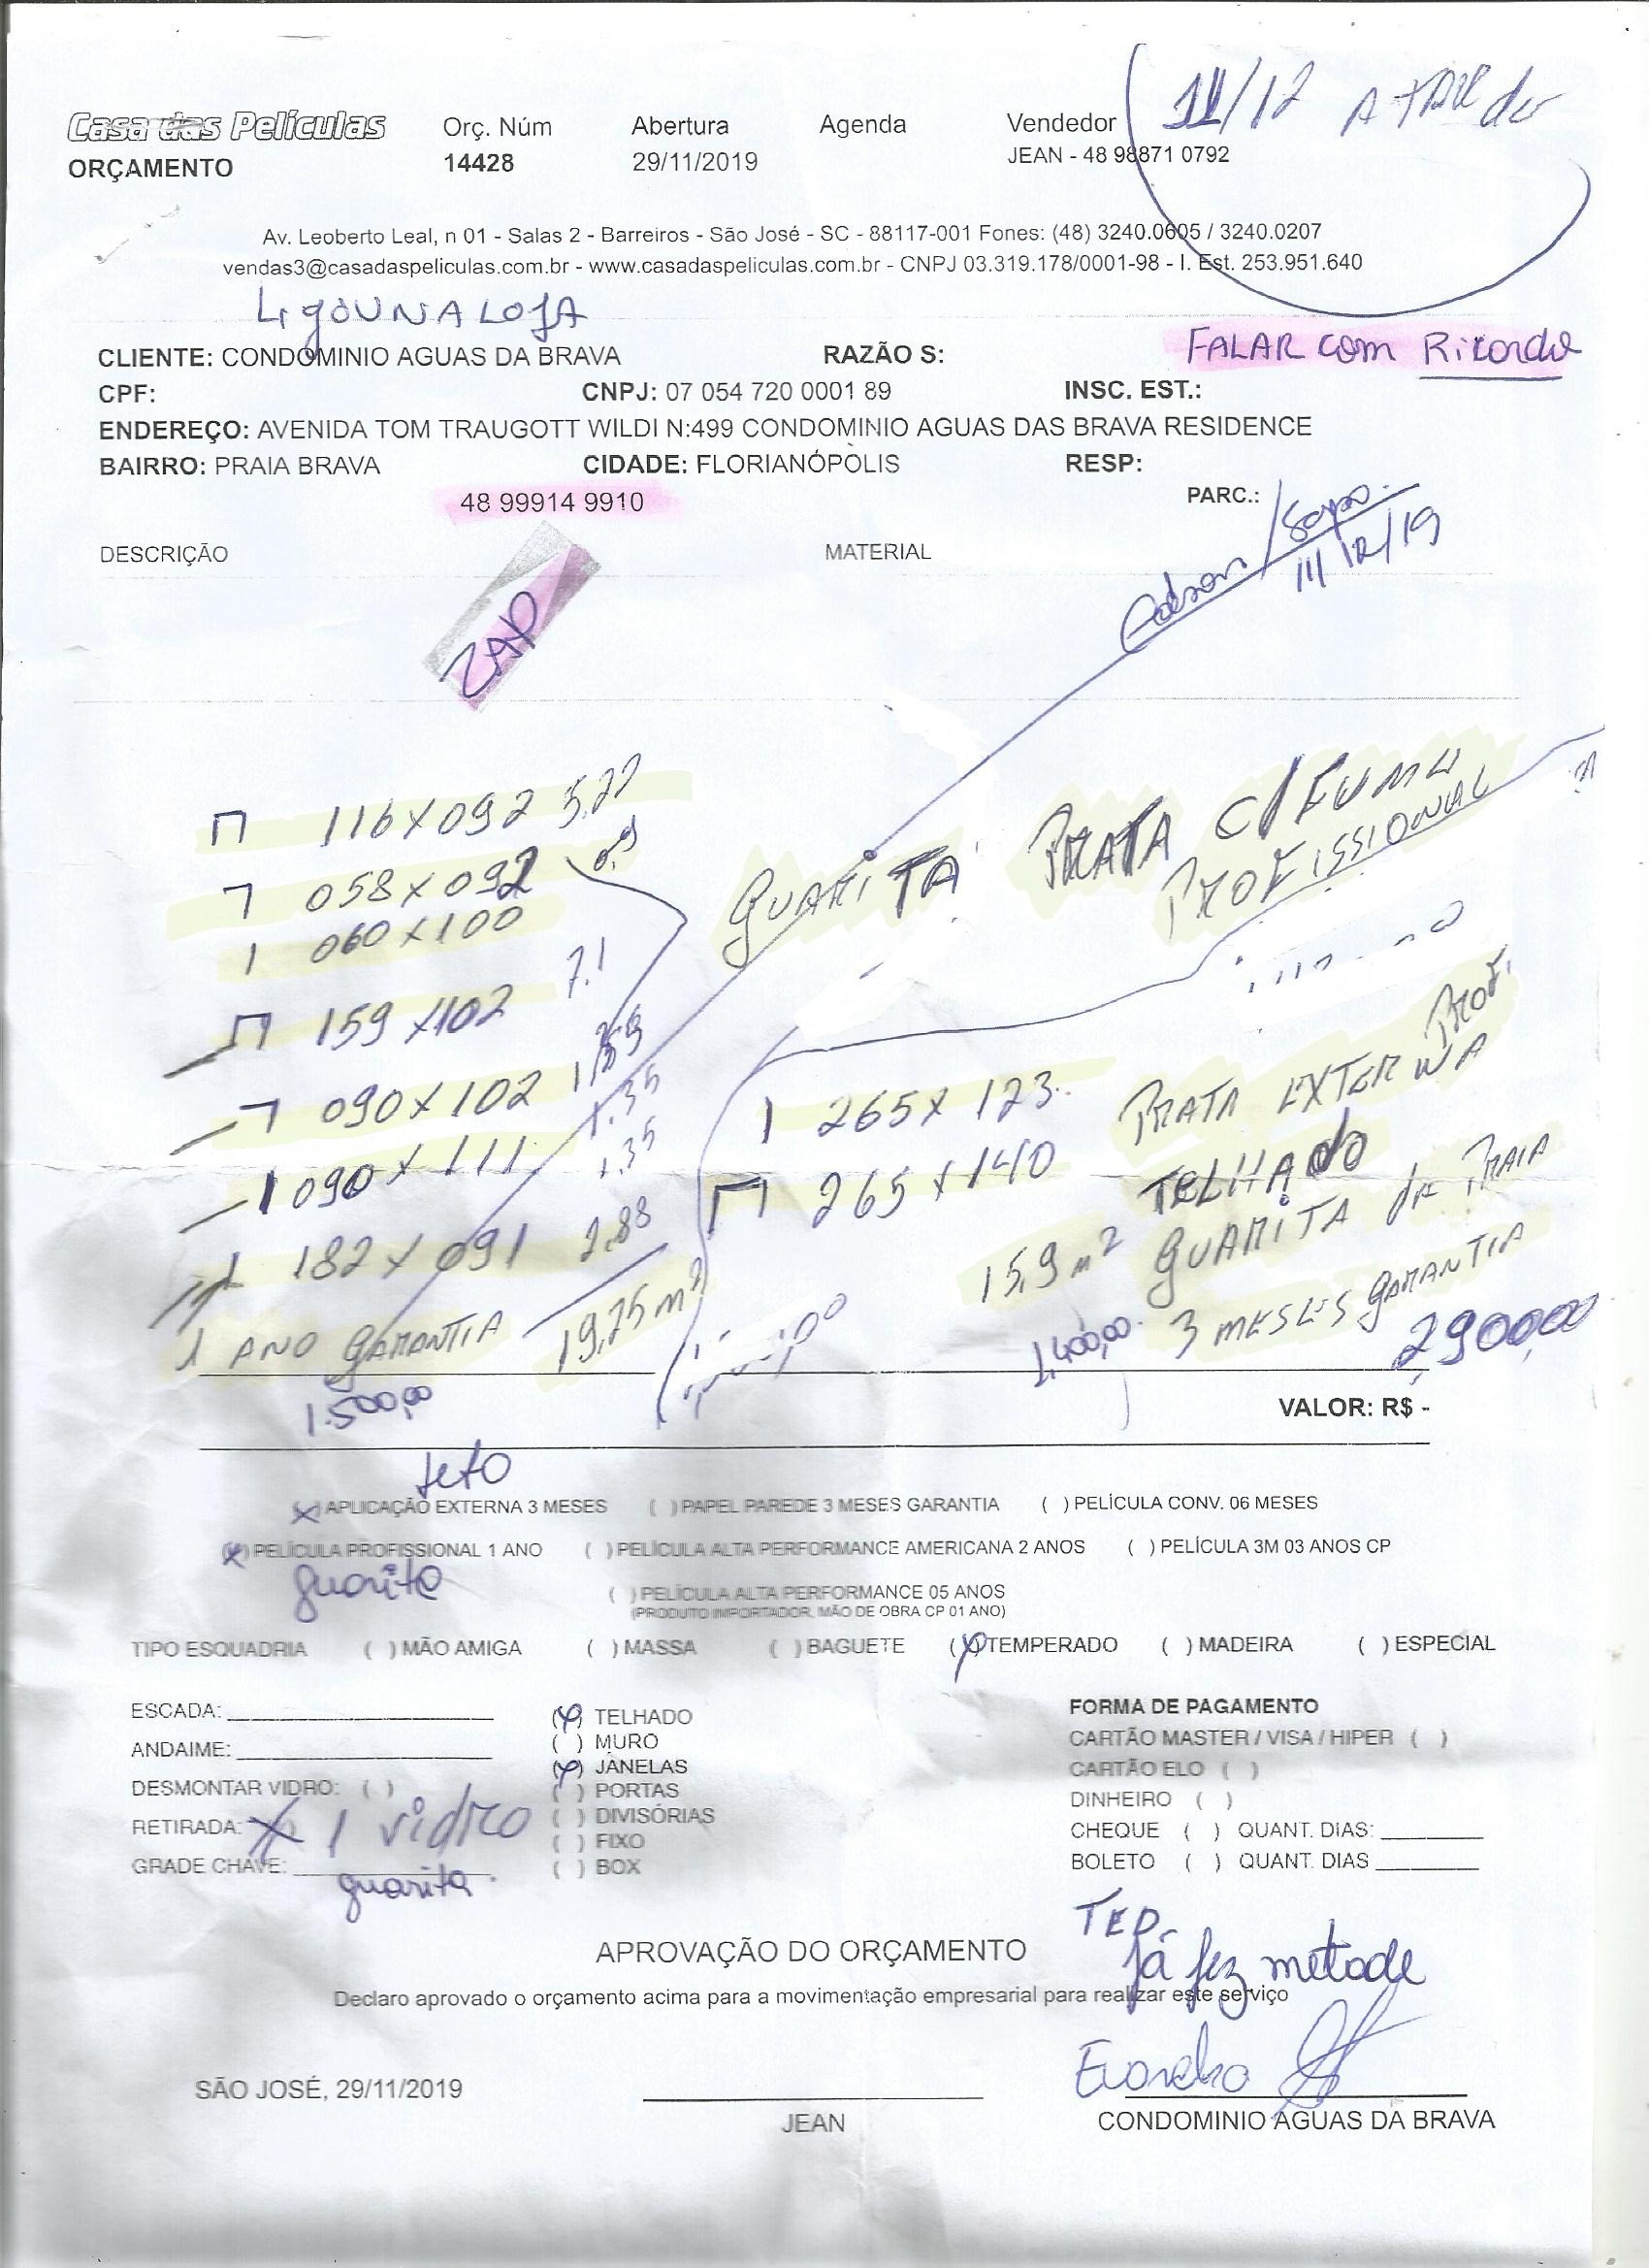 11/12 A TARde
Casa das Películas
ORÇAMENTO
Orç. Núm
14428
Abertura
29/11/2019
Agenda
Vendedor
JEAN - 48 98871 0792
Av. Leoberto Leal, n 01 - Salas 2 - Barreiros - São José - SC - 88117-001 Fones: (48) 3240.0605 / 3240.0207
vendas3@casadaspeliculas.com.br - www.casadaspeliculas.com.br - CNPJ 03.319.178/0001-98 - I. Est. 253.951.640
LigOU NA LOJA
FALAR com Ricardo
CLIENTE: CONDOMINIO AGUAS DA BRAVA RAZÃO S:
CPF: CNPJ: 07 054 720 0001 89 INSC. EST.:
ENDEREÇO: AVENIDA TOM TRAUGOTT WILDI N:499 CONDOMINIO AGUAS DAS BRAVA RESIDENCE
BAIRRO: PRAIA BRAVA CIDADE: FLORIANÓPOLIS RESP:
48 99914 9910 PARC.:
Edson / Sapo
11/12/19
DESCRIÇÃO MATERIAL
ZAP
116 x 092 5,22
058 x 092 0,9
1 060 x 100
159 x 102 7.1
090 x 102
1,35
1 090 x 111 1,35
182 x 091 2,88
1 ANO GARANTIA 19,75 m²
1.500,00
GUARITA PRATA C/ FUMÊ
PROFISSIONAL
1 265 x 123 PRATA EXTERNA PROF.
265 x 140 TELHAdo
15,9 m² GUARITA dA PRAIA
1.400,00 3 MESES GARANTIA
2900,00
VALOR: R$ -
teto
(x) APLICAÇÃO EXTERNA 3 MESES ( ) PAPEL PAREDE 3 MESES GARANTIA ( ) PELÍCULA CONV. 06 MESES
(x) PELÍCULA PROFISSIONAL 1 ANO ( ) PELÍCULA ALTA PERFORMANCE AMERICANA 2 ANOS ( ) PELÍCULA 3M 03 ANOS CP
guarita
( ) PELÍCULA ALTA PERFORMANCE 05 ANOS
(PRODUTO IMPORTADOR, MÃO DE OBRA CP 01 ANO)
TIPO ESQUADRIA ( ) MÃO AMIGA ( ) MASSA ( ) BAGUETE (x) TEMPERADO ( ) MADEIRA ( ) ESPECIAL
ESCADA:
ANDAIME:
DESMONTAR VIDRO: ( )
RETIRADA: x 1 vidro
GRADE CHAVE:
guarita
(x) TELHADO
( ) MURO
(x) JANELAS
( ) PORTAS
( ) DIVISÓRIAS
( ) FIXO
( ) BOX
FORMA DE PAGAMENTO
CARTÃO MASTER / VISA / HIPER ( )
CARTÃO ELO ( )
DINHEIRO ( )
CHEQUE ( ) QUANT. DIAS:
BOLETO ( ) QUANT. DIAS
TED.
Já fez metade
APROVAÇÃO DO ORÇAMENTO
Declaro aprovado o orçamento acima para a movimentação empresarial para realizar este serviço
Evandro
SÃO JOSÉ, 29/11/2019
JEAN
CONDOMINIO AGUAS DA BRAVA